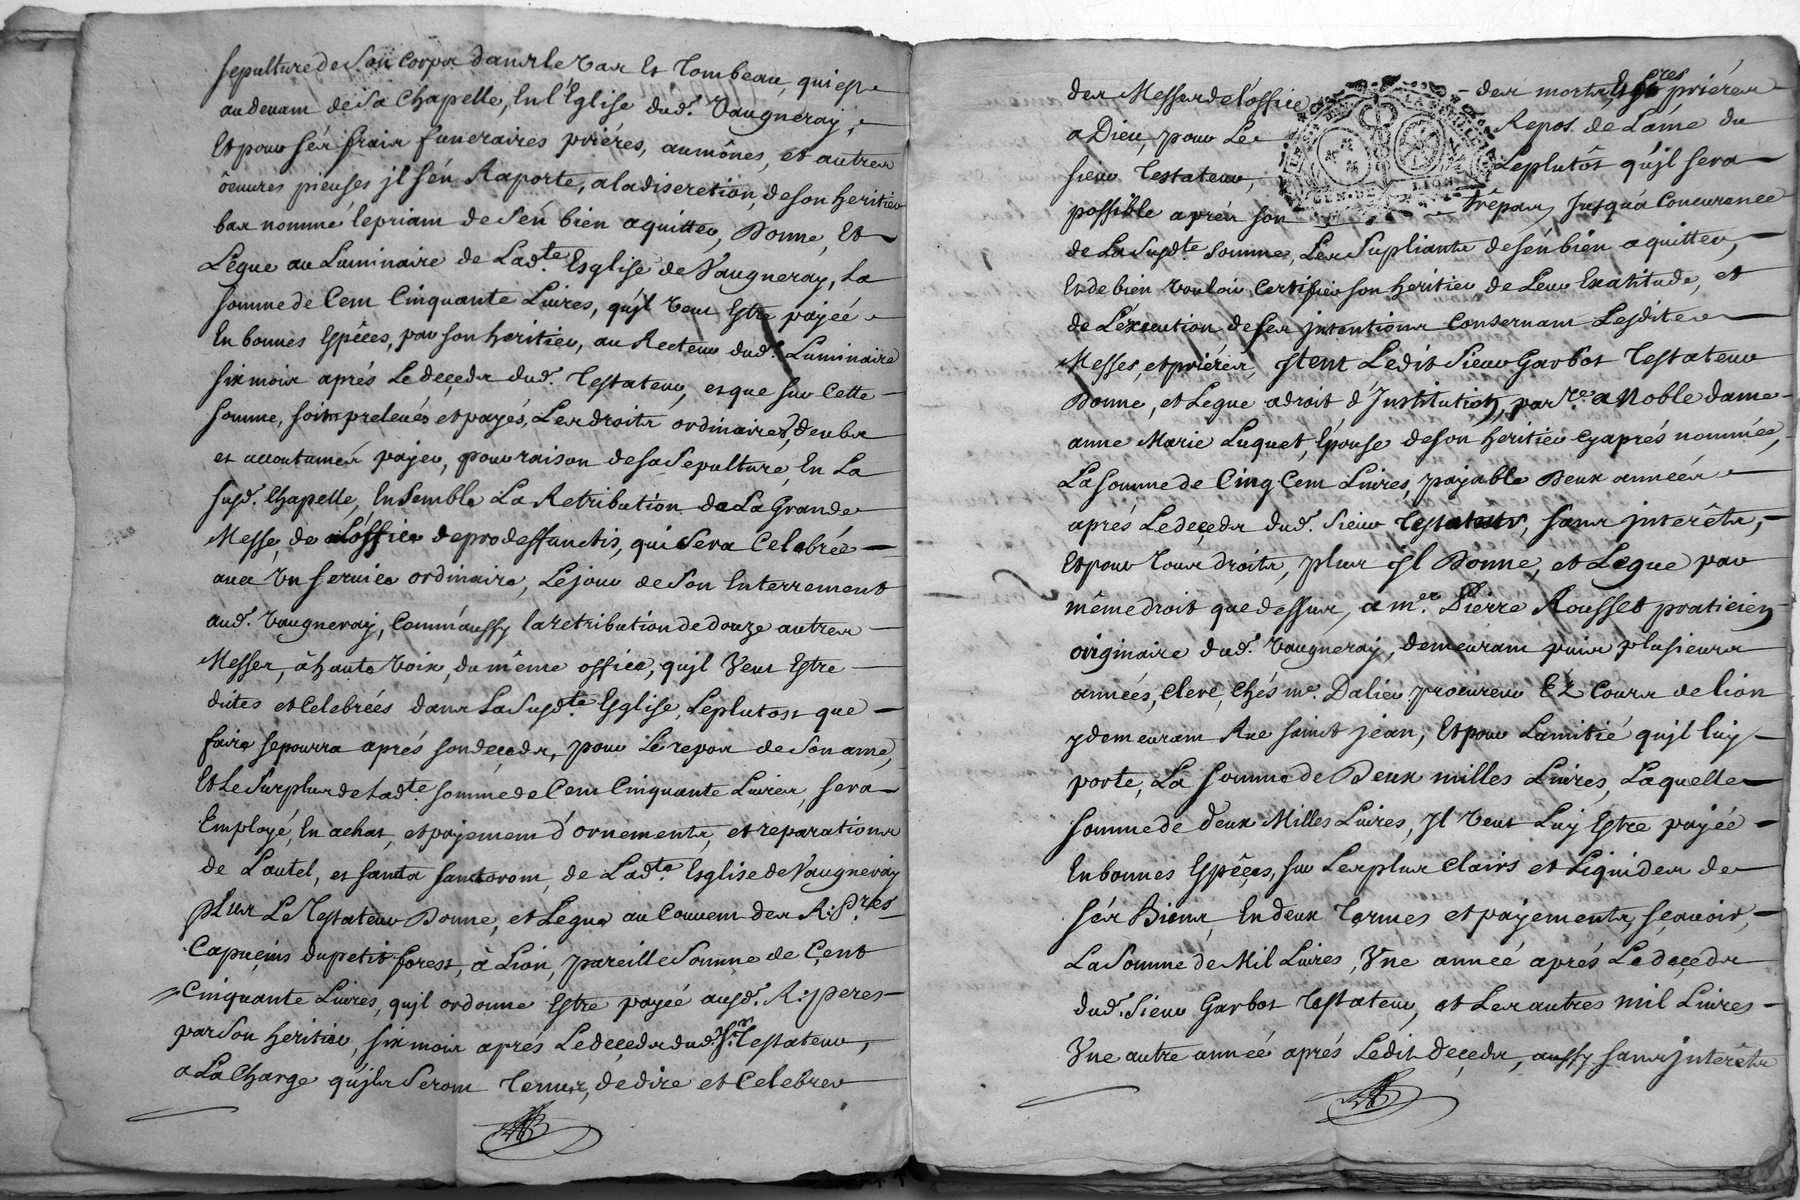 sepulture de Son Corps dans le Vas Et Tombeau, qui est
au devant de Sa Chapelle, En l'Eglise dud. Vaugneray,
Et pour sés frais funeraires priéres, aumônes, et autres
oeuvres pieuses jl s'én Raporte, a la discretion, de son heritier
bas nommé le priant de s'én bien aquitter, Donne, Et
Légue au Luminaire de Ladte. Esglise de Vaugneray, La
somme de Cent Cinquante Livres, qu'jl veut Estre payéé
En bonnes Espéces, par son heritier, au Recteur dud. Luminaire
six mois aprés Le deçeds dud. Testateur, et que sur Cette
somme, soint prelevés et payés, Les droits ordinaires, deubs
et accoutumés payer, pour raison de sa Sepulture, En La
susd. Chapelle, Ensemble La Retribution de La Grande
Messe, de L'office de pro deffunctis, qui Sera Celebrée
avec Un service ordinaire, Le jour de Son Enterrement
aud. Vaugneray, Comm'aussy la retribution de douze autres
Messes, à haute Voix, du même office, qu'jl Veut Estre
dittes et Celebrées dans La Susdte. Esglise, Le plutost que
faire se pourra aprés son deçeds, pour Le repos de Son ame,
Et Le Surplus de Ladte. somme de Cent Cinquante Livres, sera
Employé, En achat, et payement d'ornements, et reparations
de L'autel, et santa santorom, de Ladte. Esglise de Vaugneray
plus Le Testateur Donne, et Legue au Couvent des R: Pres
Capuçins du petit forest, à Lion, pareille Somme de Cent
Cinquante Livres, qu'jl ordonne Estre payéé ausd. R: peres
par Son heritier, six mois aprés Le deçeds dud. Sr. Testateur,
a La Charge qu'jls Seront Tenus, de dire et Celebrer
des Messes de L'office des morts, Et prieres
a Dieu, pour Le Repos de L'ame du
sieur Testateur, Le plutôt qu'jl sera
possible aprés son trêpas, jusqu'a Concurence
de La susdte. somme, Les Supliants de s'én bien aquitter,
Et de bien vouloir Certifier son heritier de Leur Exatitude, et
de L'éxecution de ses jntentions Consernant Lesdites
Messes, et priéres, jtem Ledit Sieur Garbot Testateur
Donne, et Legue a droit d'Institution, par re. a Noble dame
anne Marie Luquet, Epouse de son heritier cy aprés nommée,
La somme de Cinq Cent Livres, payable Deux années
aprés Le deçeds dud. Sieur Testateur, sans jnterêts,
Et pour tous droits, plus jl Donne, et Legue par
même droit que dessus, a mer. Pierre Rousset praticien
originaire dud. Vaugneray, demeurant puis plusieurs
années, Clerc, chés me. Dalier procureur Ez Cours de lion
y demeurant Rue saint jean, Et pour L'amitié qu'jl luy
porte, La somme de Deux milles Livres, Laquelle
somme de deux Milles Livres, jl veut Luy Estre payéé
En bonnes Espêçes, sur Les plus Clairs et Liquides de
sés Biens, En deux Termes et payements, sçavoir,
La Somme de Mil Livres, Une année aprés Le deçeds
dud. Sieur Garbot Testateur, et Les autres mil Livres
Une autre annéé aprés Ledit deçeds, aussy sans jnterêts